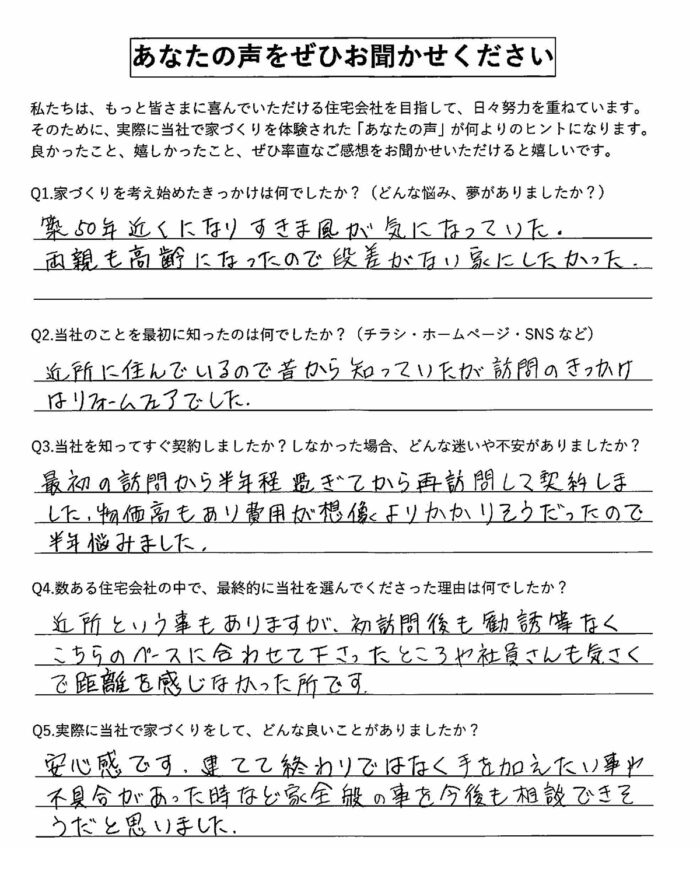 あなたの声をぜひお聞かせください
私たちは、もっと皆さまに喜んでいただける住宅会社を目指して、日々努力を重ねています。
そのために、実際に当社で家づくりを体験された「あなたの声」が何よりのヒントになります。
良かったこと、嬉しかったこと、ぜひ率直なご感想をお聞かせいただけると嬉しいです。
Q1.家づくりを考え始めたきっかけは何でしたか？（どんな悩み、夢がありましたか？）
築50年近くになりすきま風が気になっていた。
両親も高齢になったので段差がない家にしたかった.
Q2.当社のことを最初に知ったのは何でしたか？（チラシ・ホームページ・SNSなど）
近所に住んでいるので昔から知っていたが訪問のきっかけ
はリフォームフェアでした.
Q3.当社を知ってすぐ契約しましたか？しなかった場合、どんな迷いや不安がありましたか？
最初の訪問から半年程過ぎてから再訪問して契約しま
した.物価高もあり費用が想像よりかかりそうだったので
半年悩みました.
Q4.数ある住宅会社の中で、最終的に当社を選んでくださった理由は何でしたか？
近所という事もありますが、初訪問後も勧誘等なく
こちらのペースに合わせて下さったところや社員さんも気さく
で距離を感じなかった所です.
Q5.実際に当社で家づくりをして、どんな良いことがありましたか？
安心感です.建てて終わりではなく手を加えたい事や
不具合があった時など家全般の事を今後も相談できそ
うだと思いました.